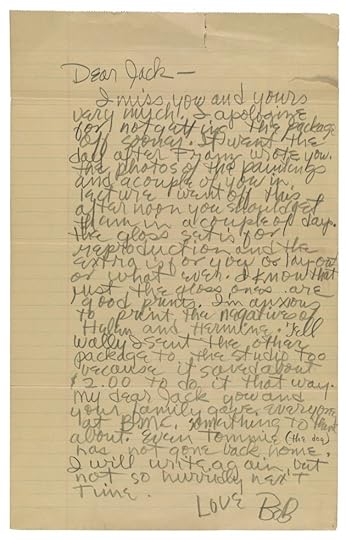 Dear Jack —
I miss you and yours
very much. I apologize
for not getting the package
off sooner. It went the
day after Franz wrote you.
the photos of the paintings
and a couple of you in
lecture went off this
afternoon you should get
them in a couple of day.
the gloss set is for
reproduction and the
extra is for you or
or what ever. I know that
just the gloss ones are
good prints. I'm anxious
to print the negatives of
Helen and Hermine. Tell
Wally I sent the other
package to the studio too
because it saved about
$2.00 to do it that way.
My dear Jack you and
your family gave everyone
at BMC. something to think
about. Even Tompie (the dog)
has not gone back home.
I will write again but
not so hurridly next
time.
Love BB